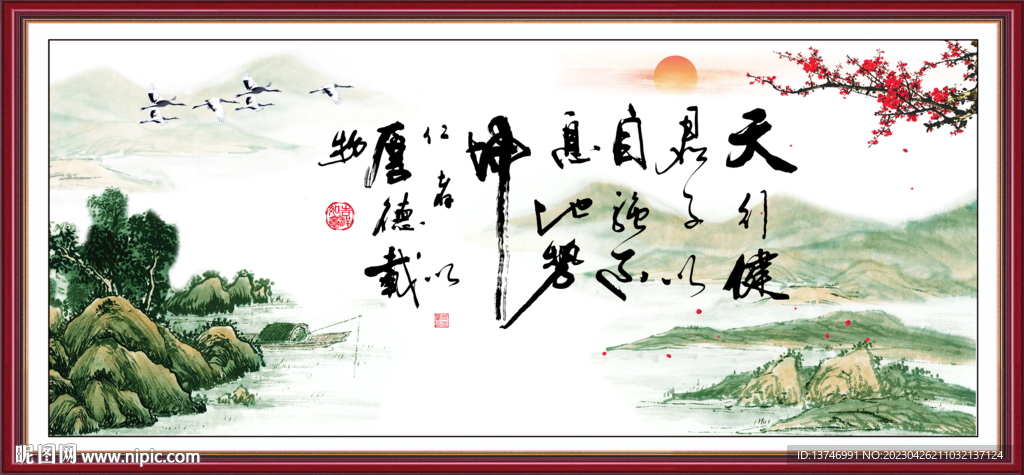 天行健
君子以
自強不
息地勢
坤
仁者以
厚德載
物
吉祥如意
昵图网 www.nipic.com
ID:13746991 NO:20230426211032137124